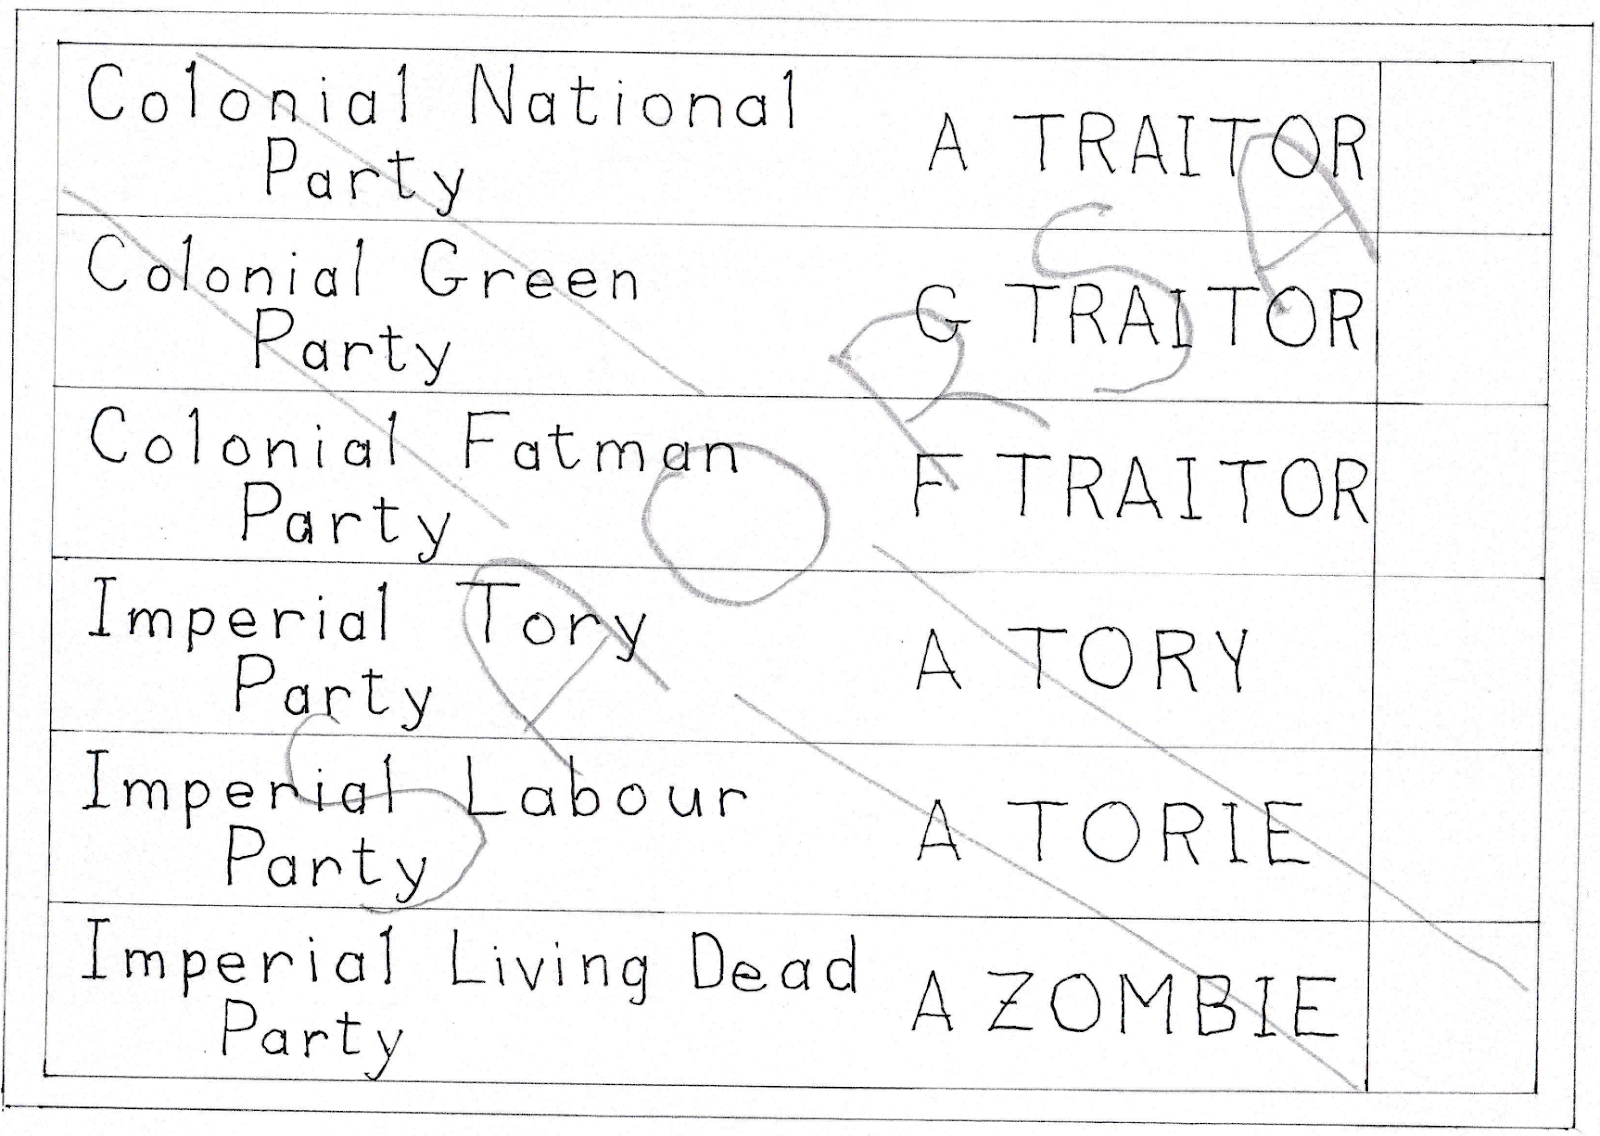 Colonial National
Party
A TRAITOR
Colonial Green
Party
G TRAITOR
Colonial Fatman
Party
F TRAITOR
Imperial Tory
Party
A TORY
Imperial Labour
Party
A TORIE
Imperial Living Dead
Party
A ZOMBIE
SAORSA